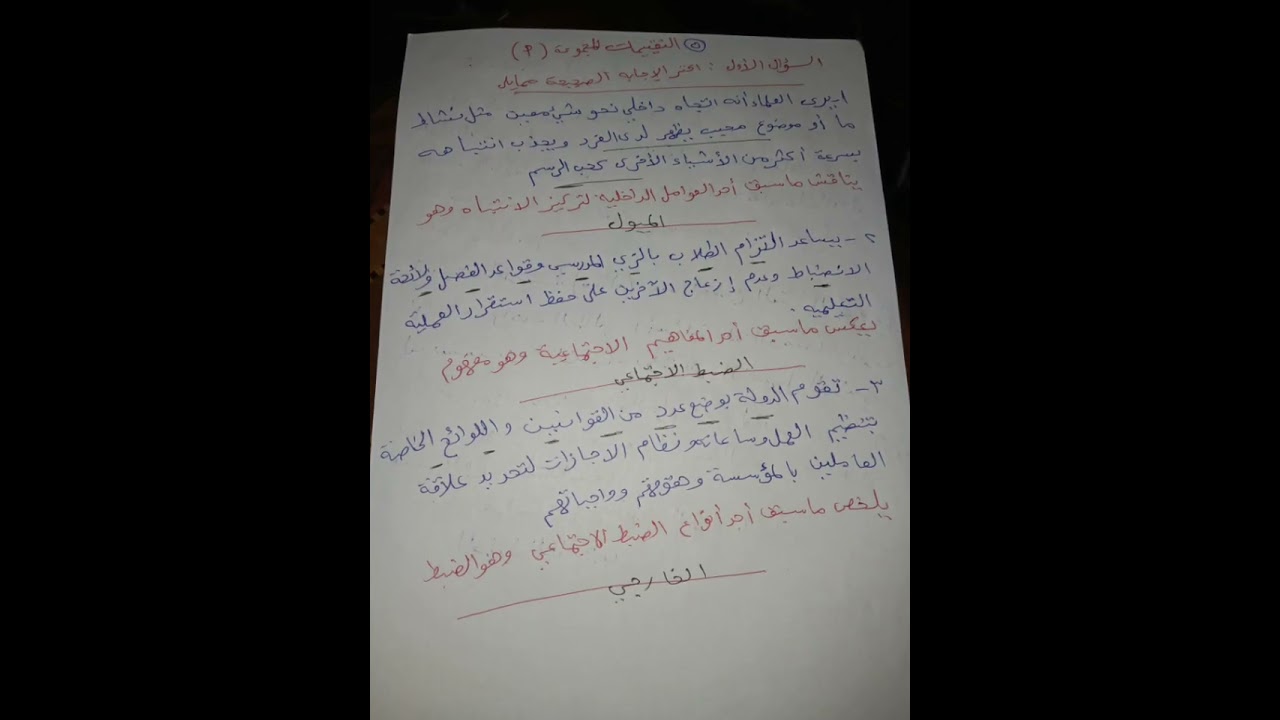 ⑤ التقييمات المجموعة (٩)
السؤال الأول : اختر الإجابة الصحيحة ممايلى
١- يرى العلماء أنه اتجاه داخلي نحو شيء معين مثل نشاط
ما أو موضوع معين يظهر لدى الفرد ويجذب انتباهه
بسرعة أكثر من الأشياء الأخرى كحب الرسم
يناقش ماسبق أحد العوامل الداخلية لتركيز الانتباه وهو
الميول
٢- يساعد التزام الطلاب بالزي المدرسي وقواعد الفصل ولائحة
الانضباط وعدم إزعاج الآخرين على حفظ استقرار العملية
التعليمية .
يعكس ماسبق أحد المفاهيم الاجتماعية وهو مفهوم
الضبط الاجتماعي
٣- تقوم الدولة بوضع عدد من القوانيين واللوائح الخاصة
بتنظيم العمل وساعاته ونظام الاجازات لتحديد علاقة
العاملين بالمؤسسة وحقوقهم وواجباتهم
يلخص ماسبق أحد أنواع الضبط الاجتماعي وهو الضبط
الخارجي